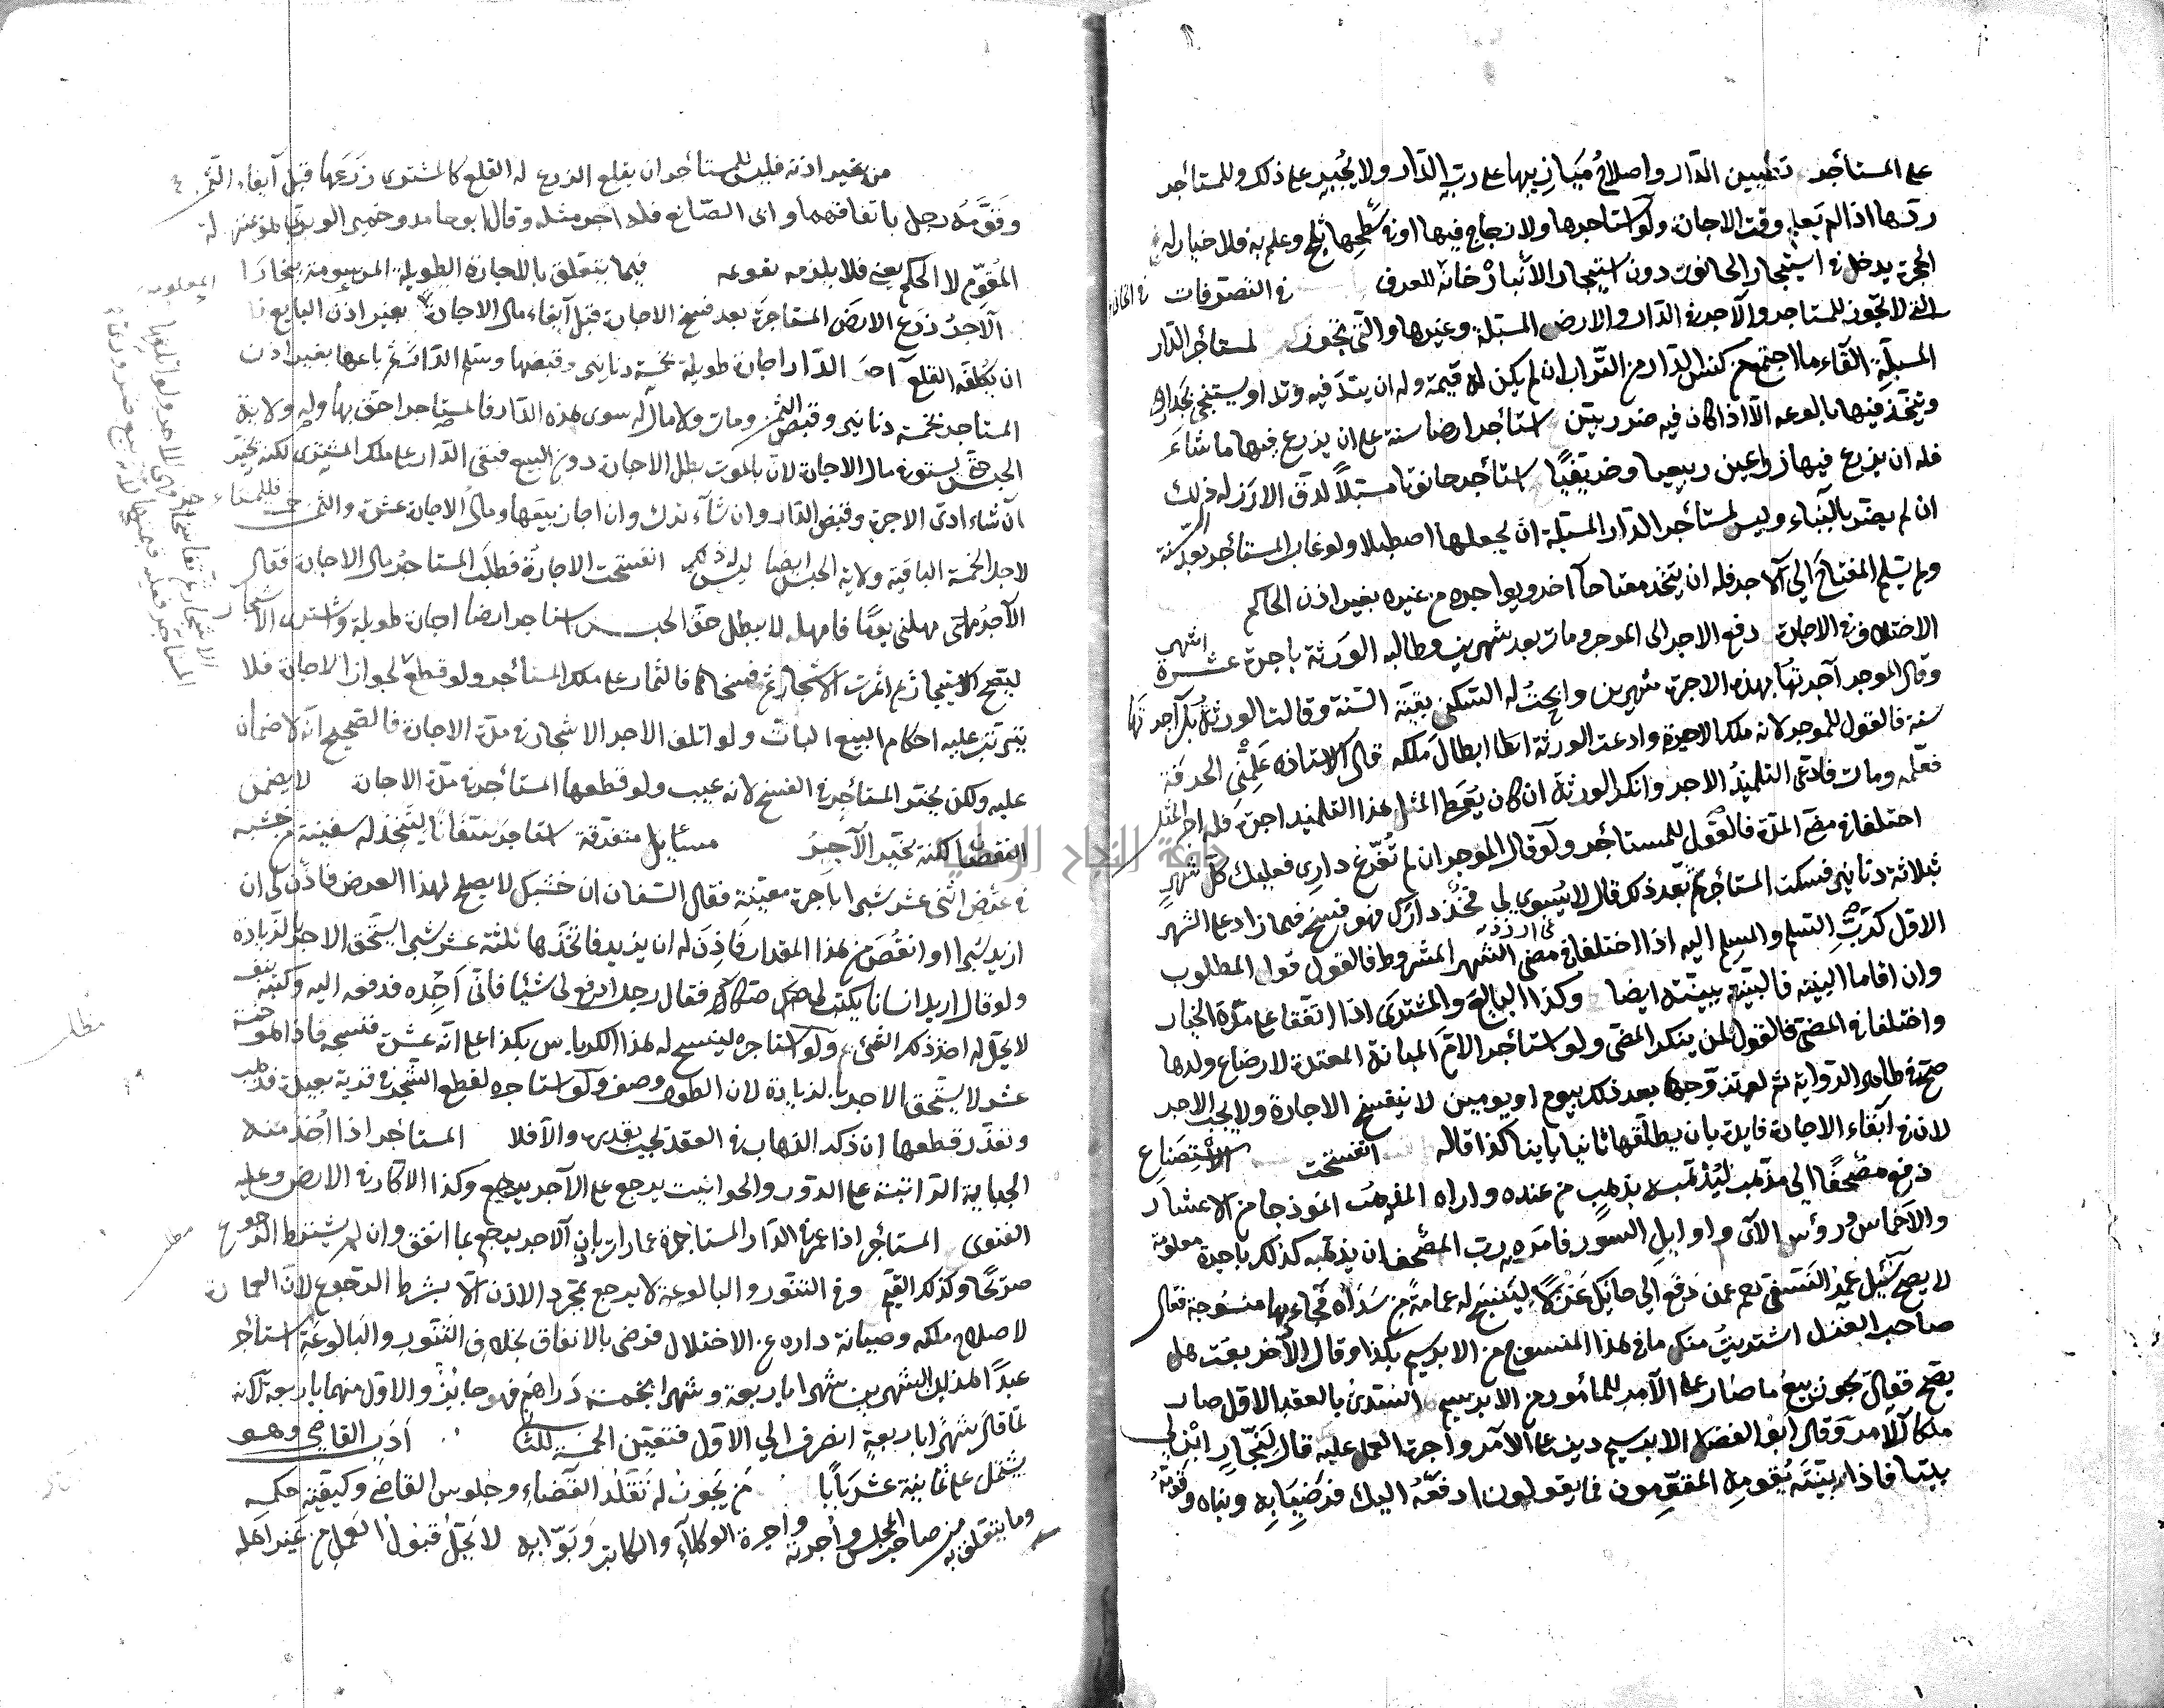 على المستأجر تطيين الدار واصلاح ميازيبها على رب الدار ولا يجبر على ذلك وللمستأجر
ردها اذا لم يعلم وقت الاجارة ولو استاجرها ولا زجاج فيها او في سطحها ثلج وعلم به فلا خيار له
يدخل في استيجار الحانوت دون استيجار الأنبار خانه للعرف في التصرفات
التي لا تجوز للمستاجر والآجر في الدار والارض المسبلة وغيرها والتي تجوز لمستأجر الدار
المسبلة القاء ما اجتمع من كنس الدار من التراب ان لم يكن له قيمة وله ان يتد فيه وتدا او يستنجي بجداره
ويتخذ فيها بالوعه الا اذا كان فيه ضرر بين استأجر ارضا سنة على ان يزرع فيها ما شاء
فله ان يزرع فيها زراعين ربيعيا وخريفيا استأجر حانوتا مسبلا لدق الارز له ذلك
ان لم يضر بالبناء وليس لمستأجر الدار المسبلة ان يجعلها اصطبلا ولو غاب المستأجر بعد السنة
ولم يسلم المفتاح الى الآجر فله ان يتخذ مفتاحا آخر ويواجره من غيره بغير اذن الحاكم
الاختلاف في الاجارة دفع الاجر الى الموجر ومات بعد شهرين وطالبه الورثة باجرة عشرة اشهر
وقال الموجر آجرتها بهذه الاجرة شهرين وابحت له السكنى بقية السنة وقالت الورثة بل آجرتها
سنة فالقول للموجر لانه ملك الاجرة وادعت الورثة ابطال ملكه قال لاستاذه علمني الحرفة
فعلمه ومات فادعى التلميذ الاجر وانكر الورثة ان كان يعطي المثل هذا التلميذ اجرة فله اجر المثل
اختلفا في مضي المدة فالقول للمستأجر ولو قال الموجر ان لم تفرغ داري فعليك كل شهر
بثلاثة دنانير فسكت المستأجر ثم بعد ذلك قال لا يسوي لي فخذ دارك فهو فسخ فيما زاد على الشهر
الاول كرب السلم والمسلم اليه اذا اختلفا في مضي الشهر المشروط فالقول قول المطلوب
وان اقاما البينة فالبينة بينته ايضا وكذا البايع والمشترى اذا اتفقا على مدة الخيار
واختلفا في المضي فالقول لمن ينكر المضي ولو استأجر الام المبانة المعتدة لارضاع ولدها
صح في ظاهر الرواية ثم لو تزوجها بعد ذلك بيوم او يومين لا ينفسخ الاجارة ولا يجب الاجر
لان في ابقاء الاجارة فايدة بان يطلقها ثانيا باينا كذا قاله انفسخت الاستصناع
دفع مصحفا الى مذهب ليذهبه بذهب من عنده واراه المذهب انموذجا من الاعشار
والاخماس ورؤس الآي واوايل السور فامره رب المصحف ان يذهبه كذلك باجرة معلومة
لا يصح سئل عمر النسفي رحم عمن دفع الى حايك غزلا لينسج له عمامة من سداه فجاء بها منسوجة فقال
صاحب الغزل اشتريت منك ما في هذا المنسوج من الابريسم بكذا وقال الآخر بعت هل
يصح فقال يجوز بيع ما صار على الآمر للمأمور من الابريسم المشترى بالعقد الاول صار
ملكا للآمر وقال ابو الفضل الابريسم دين على الآمر واجرة العمل عليه قال لنجار ابن لي
بيتا فاذا بنيته يقومه المقومون فما يقولون ادفعه اليك فرضيا به وبناه وقومه
من غير اذنه فليس للمستأجر ان يقلع الزرع له القلع كالمشتري زرعها قبل آيفاء الثمن
وقومه رجل باتفاقهما وابى الصانع فله اجر مثله وقال ابو حامد وحمير الوبري المؤتمن له
المقوم لا الحكم يعني فلا يلزمه تقويمه فيما يتعلق بالاجارة الطويلة المرسومة ببخارا
الآجر زرع الارض المستاجرة بعد فسخ الاجارة قبل آيفاء مال الاجارة بغير اذن البايع
ان يكلفه القلع آجر الدار اجارة طويلة بخمسة دنانير وقبضها وسلم الدار ثم باعها بغير اذن
المستاجر بخمسة دنانير وقبض الثمن ومات ولا مال له سوى هذه الدار فالمستاجر احق بها وله ولاية
الحبس حتى يستوفي مال الاجارة لان بالموت بطل الاجارة دون البيع فبقي الدار على ملك المشتري لكنه يخير
ان شاء ادى الاجرة وقبض الدار وان شآء ترك وان اجاز بيعها ومال الاجارة عشرة والثمن خمسة فللمستاجر
لاجل الخمسة الباقية ولاية الحبس ايضا ليس له ذلك انفسخت الاجارة فطلب المستاجر مال الاجارة فقال
الآجر امهلني يوما فامهله لا يبطل حق الحبس استاجر ارضا اجارة طويلة واشترى الاشجار
ليصح الاستيجار ثم اثمرت الاشجار ثم فسخاها فالثمار على ملك المستأجر ولو قطع لجواز الاجارة فلا
يترتب عليه احكام البيع البات ولو اتلف الآجر الاشجار في مدة الاجارة فالصحيح انه لا ضمان
عليه ولكن يخير المستأجر في الفسخ لانه عيب ولو قطعها المستأجر في مدة الاجارة لا يضمن
النقصان لكنه يخير الآجر مسائل متفرقة استاجر سفانا ليتخذ له سفينة من خشبه
في عرض اثنى عشر شبرا باجرة معينة فقال السفان ان خشبك لا يصلح لهذا العرض فأذن لي ان
ازيد شبرا او انقص من هذا المقدار فاذن له ان يزيد فاتخذها ثلثة عشر شبرا يستحق الاجر بالزيادة
ولو قال اريد انسانا يكتب لي صكا فقال رجل ادفع لي شيئا فاني اجده فدفعه اليه وكتبه بنفسه
لا يحل له اخذ ذلك الشئ ولو استاجره لينسج له هذا الكرباس بكذا على انه عشرة فنسجه فاذا هو خمسة
عشر لا يستحق الاجر بالزيادة لان الطول وصف ولو استاجره لقطع الشجر في قرية بعيدة فذهب
وتعذر قطعها ان ذكر الذهاب في العقد يجب بقدره والا فلا المستاجر اذا اخذ منه
الجباية الراتبة على الدور والحوانيت يرجع على الآجر وكذا الاكار في الارض وعليه
الفتوى المستأجر اذا عمر في الدار المستاجرة عمارات باذن الآجر يرجع بما انفق وان لم يشترط الرجوع
صريحا وكذلك القيم وفي التنور والبالوعة لا يرجع بمجرد الاذن الا بشرط الرجوع لان العمارة
لاصلاح ملكه وصيانة داره عن الاختلال فرضي بالانفاق بخلاف التنور والبالوعة استأجر
عبدا هذين الشهرين شهرا باربعة وشهرا بخمسة دراهم فهو جايز والاول منهما باربعة لانه
لما قال شهرا باربعة انصرف الى الاول فتتعين الخمسة للثاني أدب القاضي وهو
يشتمل على ثمانية عشر بابا من يجوز له تقلد القضاء وجلوس القاضي وكيفية حكمه
وما يتعلق به من صاحب المجلس وأجرته واجرة الوكلآء والكاتب وبوابه لا يحل قبول العمل من غير اهله
مطلب
مطلب
جامعة النجاح الوطنية